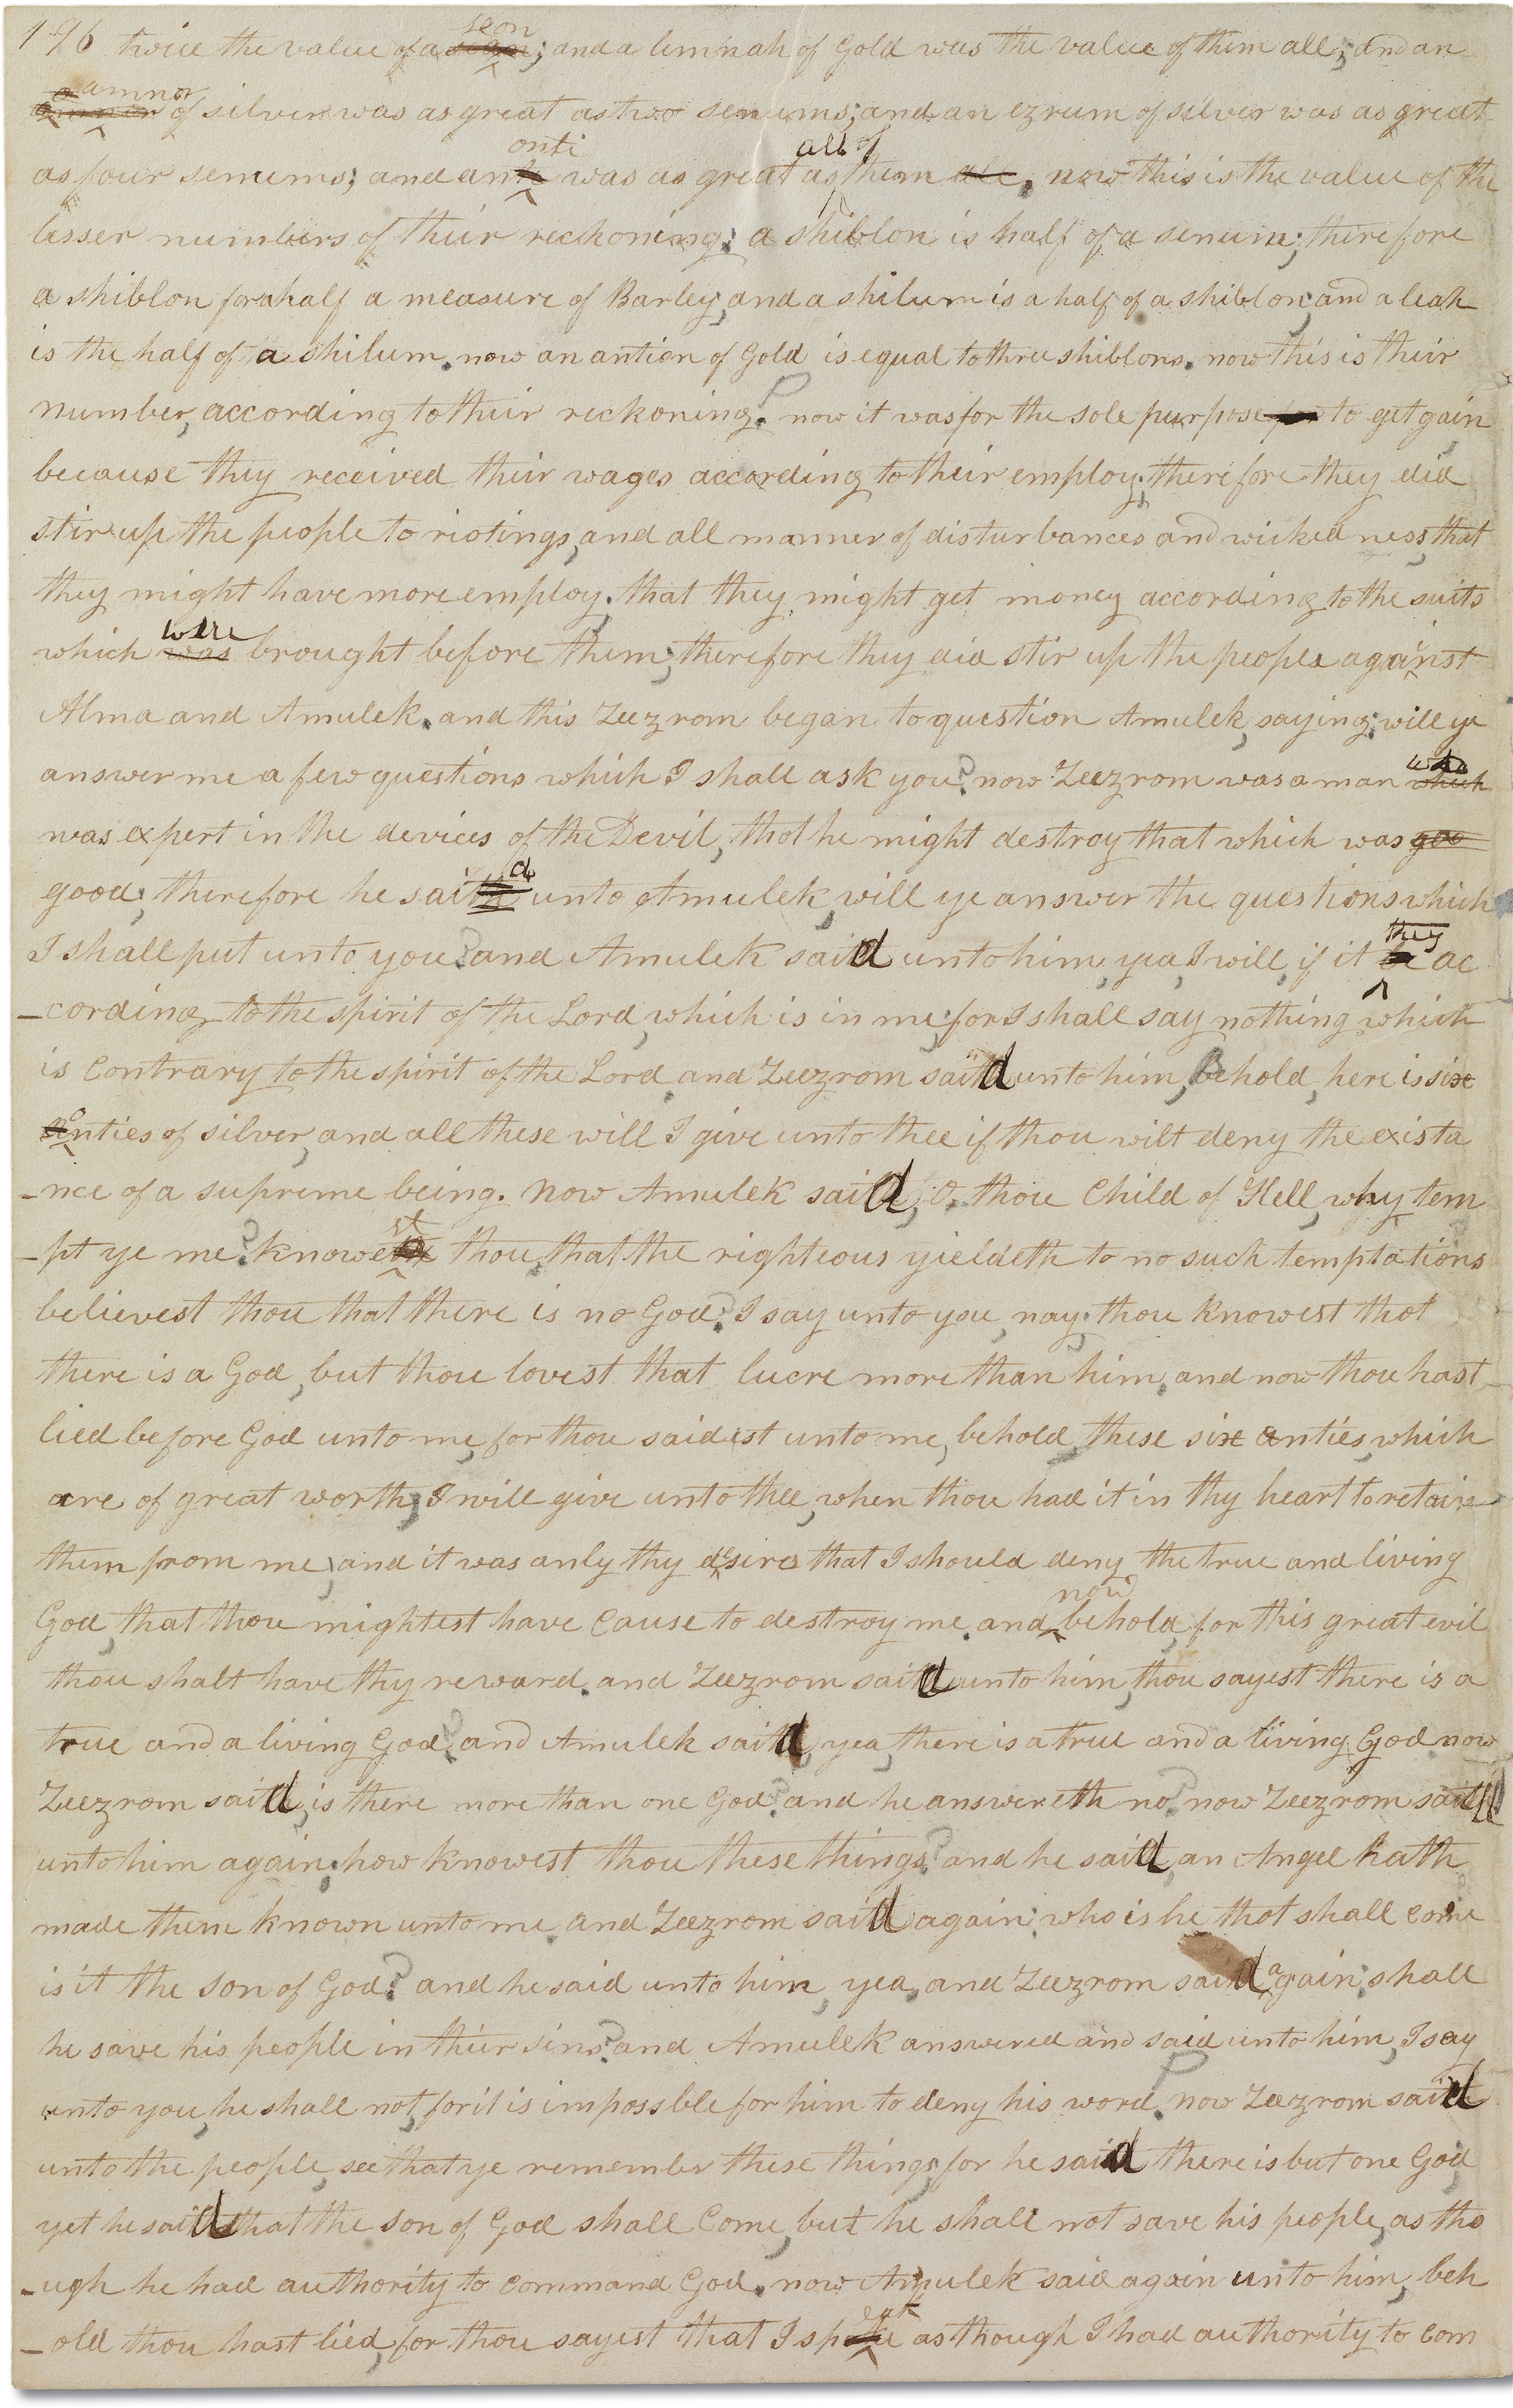 196 twice the value of a seon; and a limnah of Gold was the value of them all; and an
amnor of silver was as great as two senums; and an ezrum of silver was as great
as four senums; and an onti was as great as all of them. now this is the value of the
lesser numbers of their reckoning: a shiblon is half of a senum; therefore
a shiblon for a half a measure of Barley, and a shilum is a half of a shiblon, and a leah
is the half of a shilum. now an antion of Gold is equal to three shiblons. now this is their
number, according to their reckoning. now it was for the sole purpose for to get gain
because they received their wages according to their employ; therefore they did
stir up the people to riotings, and all manner of disturbances and wickedness, that
they might have more employ. that they might get money according to the suits
which was were brought before them; therefore they did stir up the people against
Alma and Amulek. and this Zeezrom began to question Amulek, saying; will ye
answer me a few questions which I shall ask you? now Zeezrom was a man which who
was expert in the devices of the Devil, that he might destroy that which was goo
good; therefore he said unto Amulek, will ye answer the questions which
I shall put unto you? and Amulek said unto him, yea, I will, if it be they ac
-cording to the spirit of the Lord, which is in me; for I shall say nothing which
is Contrary to the spirit of the Lord and Zeezrom said unto him, Behold, here is six
onties of silver, and all these will I give unto thee if thou wilt deny the exista
-nce of a supreme being. Now Amulek said, O, thou Child of Hell, why tem
-pt ye me? knowest thou, that the righteous yieldeth to no such temptations
believest thou that there is no God? I say unto you, nay; thou knowest that
there is a God, but thou lovest that lucre more than him, and now thou hast
lied before God unto me, for thou saidest unto me, behold, these six onties, which
are of great worth, I will give unto thee, when thou had it in thy heart to retain
them from me, and it was only thy desires that I should deny the true and living
God, that thou mightest have Cause to destroy me. and now behold, for this great evil
thou shalt have thy reward. and Zeezrom said unto him, thou sayest there is a
true and a living God? and Amulek said, yea, there is a true and a living God now
Zeezrom said, is there more than one God? and he answereth no. now Zeezrom said
unto him again, how knowest thou these things? and he said, an Angel hath
made them known unto me. and Zeezrom said again: who is he that shall come
is it the son of God? and he said unto him, yea, and Zeezrom said again; shall
he save his people in their sins? and Amulek answered and said unto him, I say
unto you, he shall not, for it is impossble for him to deny his word. now Zeezrom said
unto the people, see that ye remember these things, for he said there is but one God,
yet he said that the son of God shall Come, but he shall not save his people, as tho
-ugh he had authority to Command God. now Amulek said again unto him, beh
-old thou hast lied, for thou sayest that I speak as though I had authority to Com